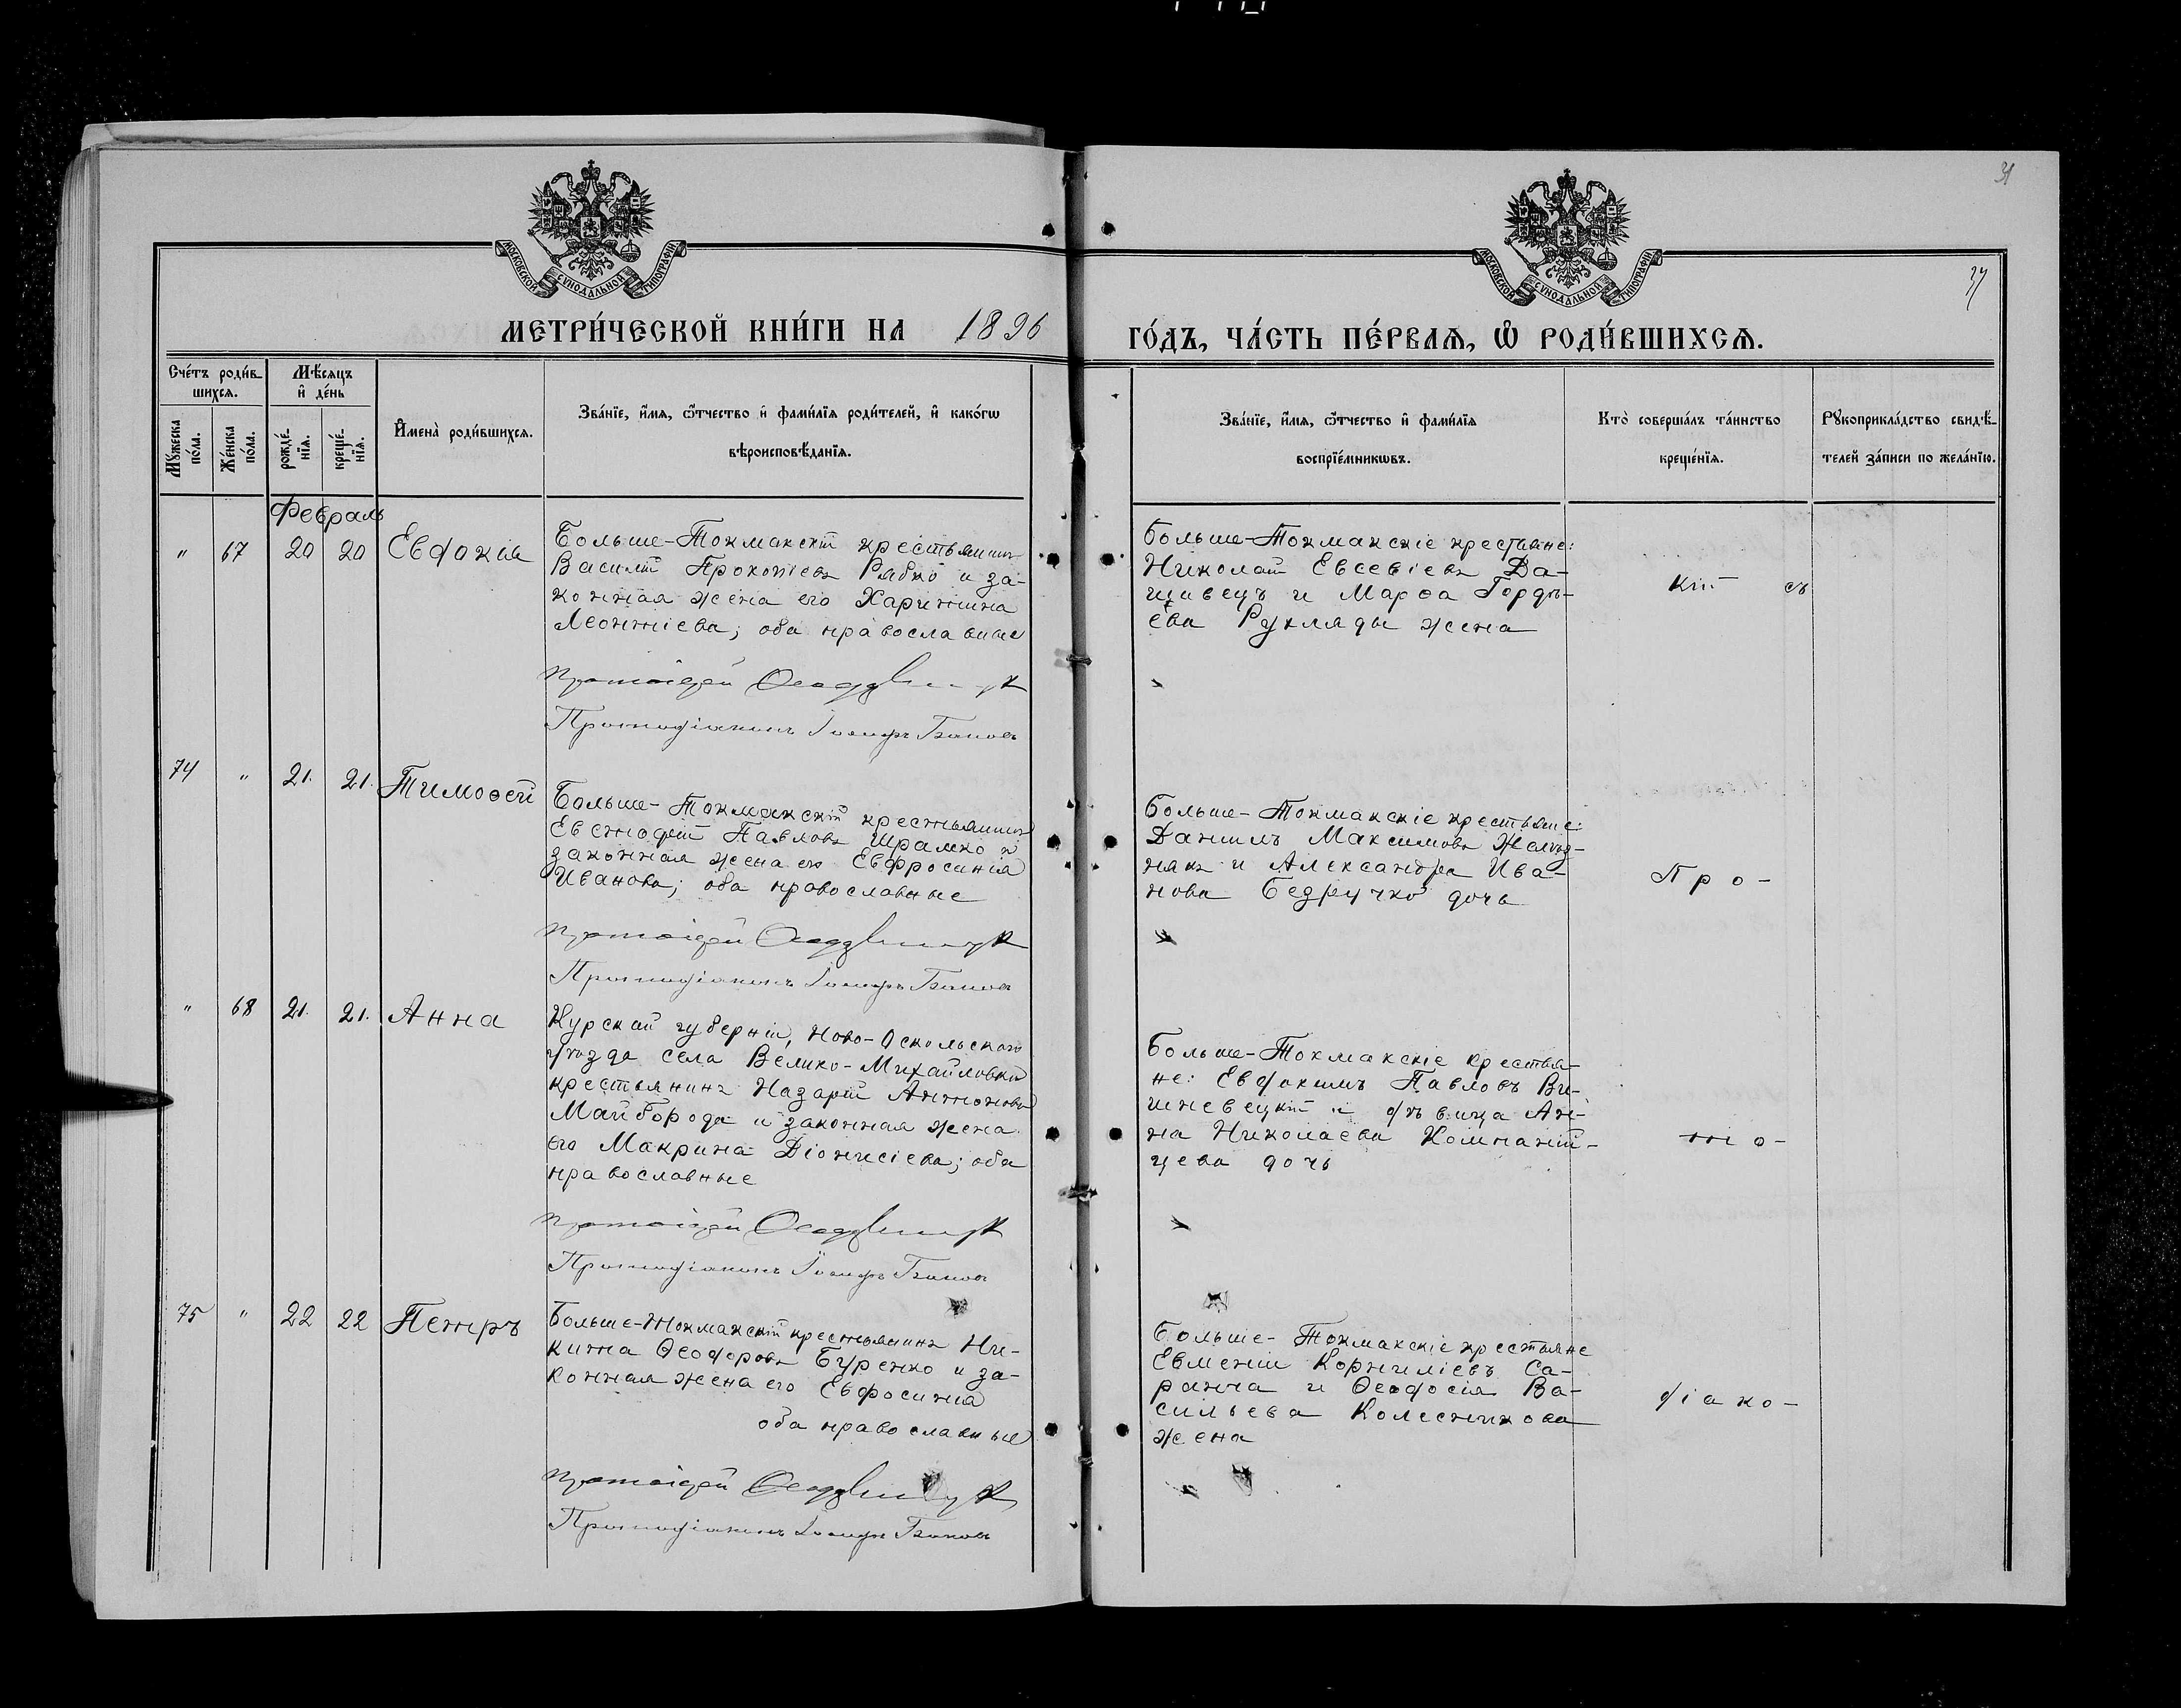 31
МОСКОВСКОЙ СУНОДАЛЬНОЙ ТИПОГРАФІИ
МОСКОВСКОЙ СУНОДАЛЬНОЙ ТИПОГРАФІИ
МЕТРИ́ЧЕСКОЙ КНИ́ГИ НА 1896 ГО́ДЪ, ЧА́СТЬ ПЕ́РВАѦ, Ѡ҆ РОДИ́ВШИХСѦ.
Сче́тъ роди́в-
шихсѧ.
Мꙋ́жеска по́ла.
Же́нска по́ла.
Мѣ́сѧцъ
и҆ де́нь
рожде́-
нїѧ.
креще́-
нїѧ.
И҆мена̀ роди́вшихсѧ.
Зва́нїе, и҆́мѧ, ѻ҆́тчество и҆ фами́лїѧ роди́телей, и҆ како́гѡ
вѣроисповѣ́данїѧ.
Зва́нїе, и҆́мѧ, ѻ҆́тчество и҆ фами́лїѧ
воспрїе́мникѡвъ.
Кто̀ соверша́лъ та́инство
креще́нїѧ.
Рꙋкоприкла́дство свидѣ́-
телей за́писи по жела́нїю.
Февраль
" 67 20 20 Евдокія
Больше-Токмакскій крестьянинъ
Василій Прокопіевъ Рябко и за-
конная жена его Харитина
Леонтіева; оба православные
Протоіерей
Протодіаконъ Іосифъ
Больше-Токмакскіе крестьяне:
Николай Евсевіевъ Да-
щивецъ и Марѳа Горды-
ева Рукляды жена
кій съ
74 " 21. 21. Тимоѳей
Больше-Токмакскій крестьянинъ
Евстафій Павловъ Шрамко и
законная жена его Евфросинія
Иванова; оба православные
Протоіерей
Протодіаконъ Іосифъ
Больше-Токмакскіе крестьяне:
Даніилъ Максимовъ
някъ и Александра Ива-
нова Бедручко дочь
Про-
" 68 21. 21. Анна
Курской губерніи, Ново-Оскольскаго
уѣзда села Велико-Михайловки
крестьянинъ Назарій Антоновъ
Майборода и законная жена
его Макрина Діонисіева; оба
православные
Протоіерей
Протодіаконъ Іосифъ
Больше-Токмакскіе крестья-
не: Евдокимъ Павловъ Ви-
шневецкій и дѣвица Ан-
на Николаева Компаній-
цева дочь
то-
75 " 22 22 Петръ
Больше-Токмакскій крестьянинъ Ни-
кита Ѳеодоровъ Буренко и за-
конная жена его Евфосинія
оба православные
Протоіерей
Протодіаконъ Іосифъ
Больше-Токмакскіе крестьяне
Евменій Корниліевъ Са-
ранча и Ѳеодосія Ва-
сильева Колесникова
жена
діако-